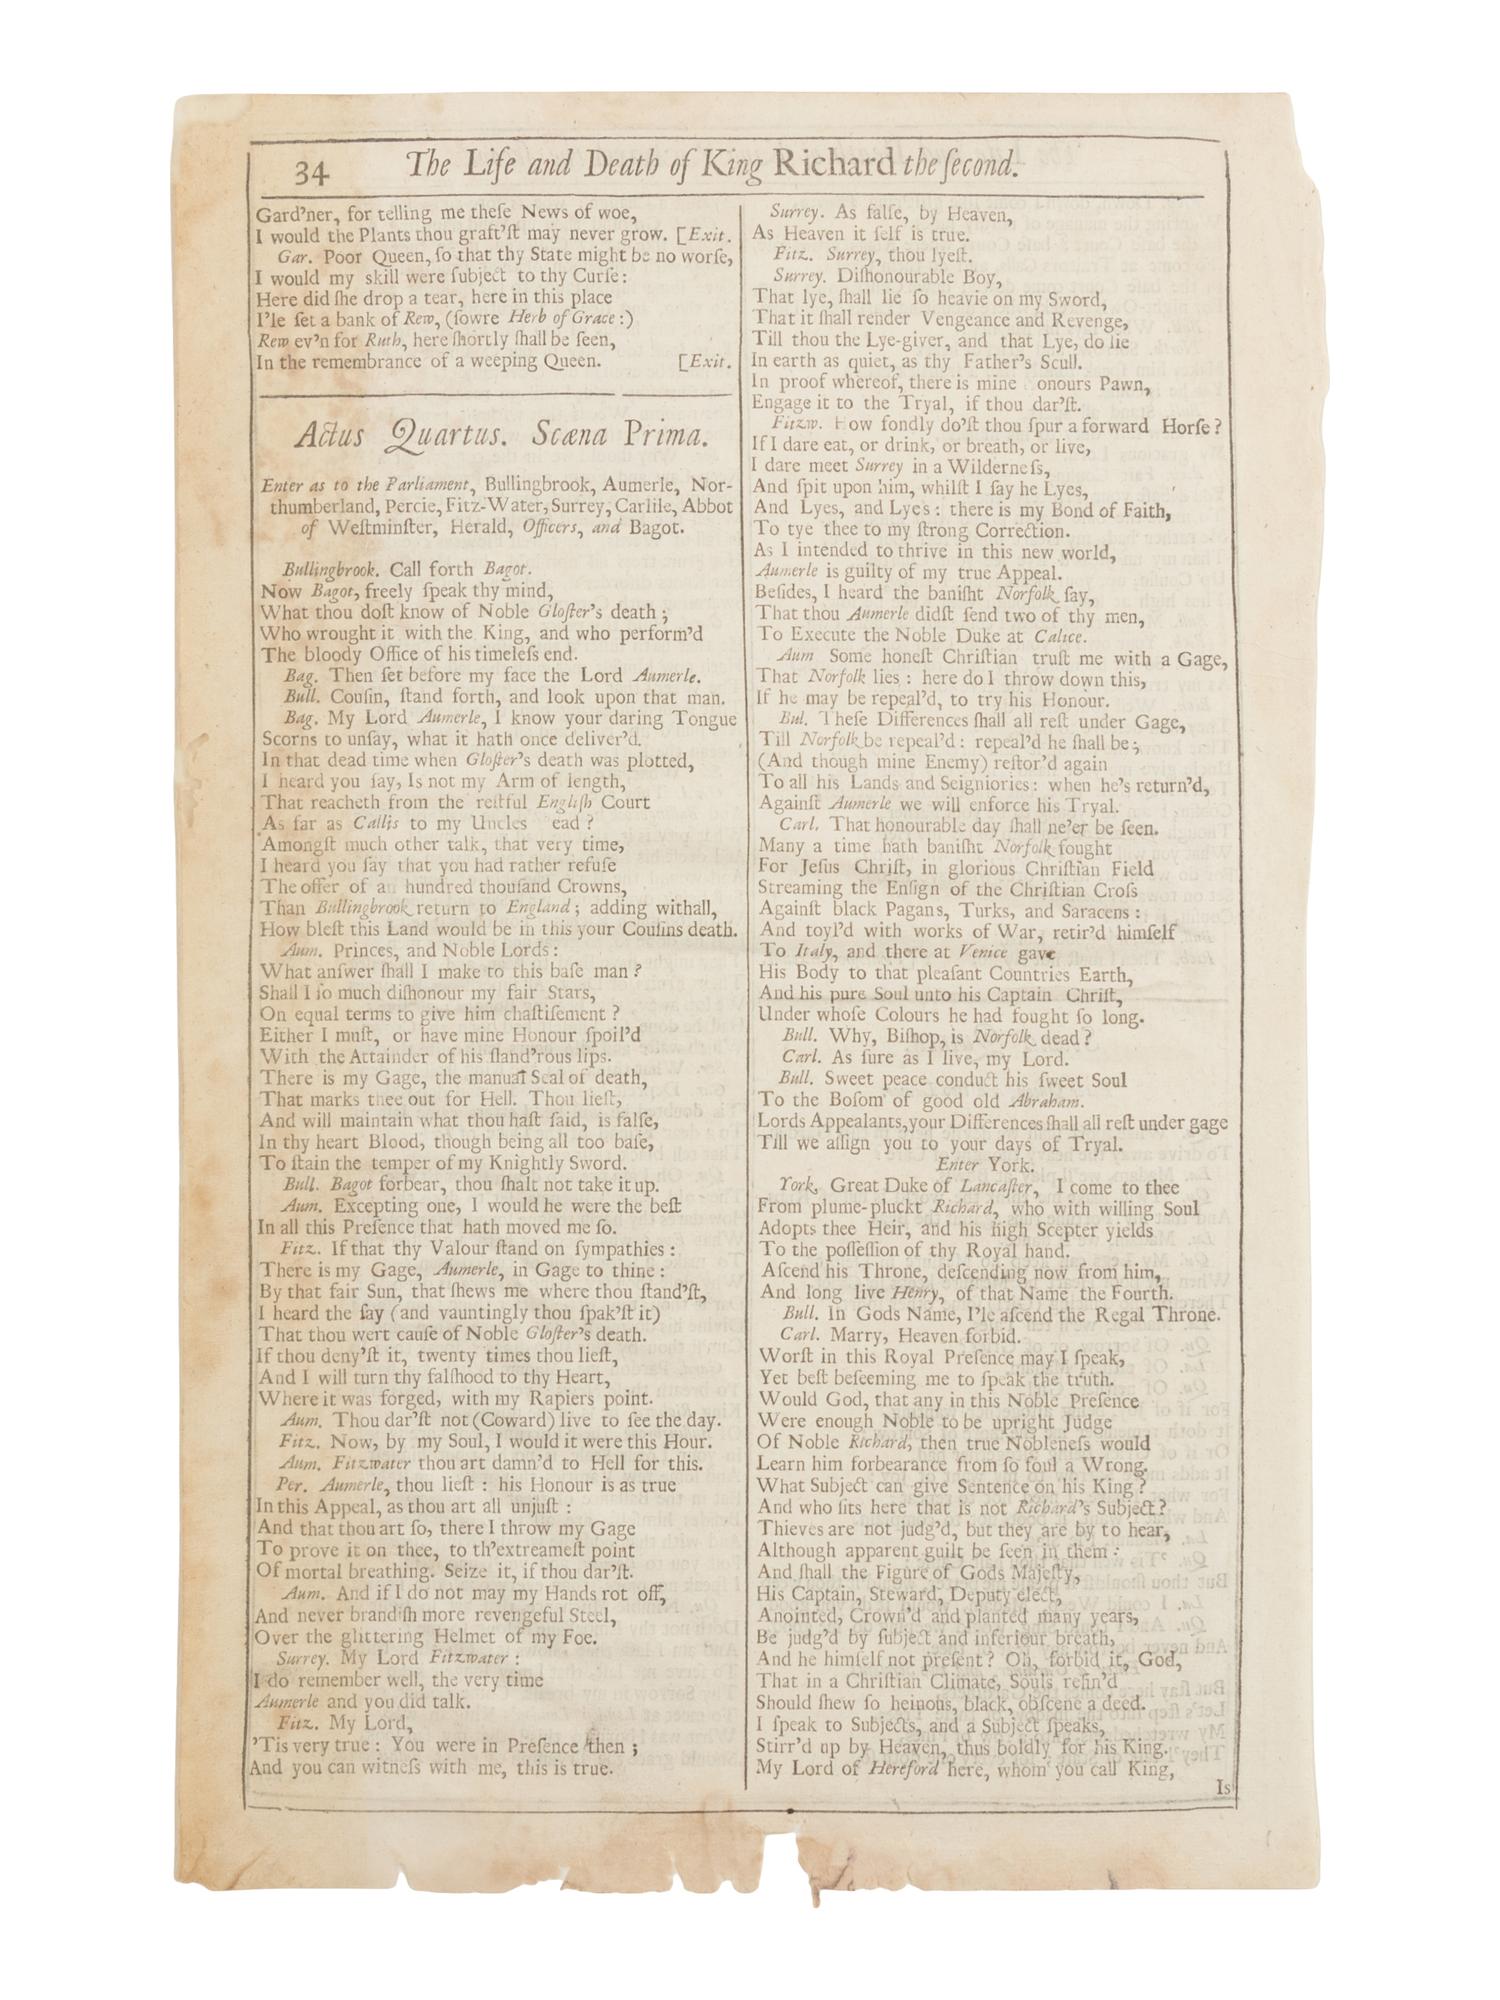 34 The Life and Death of King Richard the ſecond.
Gard'ner, for telling me theſe News of woe,
I would the Plants thou graft'ſt may never grow. [Exit.
Gar. Poor Queen, ſo that thy State might be no worſe,
I would my skill were ſubject to thy Curſe:
Here did ſhe drop a tear, here in this place
I'le ſet a bank of Rew, (ſowre Herb of Grace:)
Rew ev'n for Ruth, here ſhortly ſhall be ſeen,
In the remembrance of a weeping Queen. [Exit.
Actus Quartus. Scæna Prima.
Enter as to the Parliament, Bullingbrook, Aumerle, Nor-
thumberland, Percie, Fitz-Water, Surrey, Carlile, Abbot
of Weſtminſter, Herald, Officers, and Bagot.
Bullingbrook. Call forth Bagot.
Now Bagot, freely ſpeak thy mind,
What thou doſt know of Noble Gloſter's death;
Who wrought it with the King, and who perform'd
The bloody Office of his timeleſs end.
Bag. Then ſet before my face the Lord Aumerle.
Bull. Couſin, ſtand forth, and look upon that man.
Bag. My Lord Aumerle, I know your daring Tongue
Scorns to unſay, what it hath once deliver'd.
In that dead time when Gloſter's death was plotted,
I heard you ſay, Is not my Arm of length,
That reacheth from the reſtful Engliſh Court
As far as Callis to my Uncles ead?
Amongſt much other talk, that very time,
I heard you ſay that you had rather refuſe
The offer of an hundred thouſand Crowns,
Than Bullingbrook return to England; adding withall,
How bleſt this Land would be in this your Couſins death.
Aum. Princes, and Noble Lords:
What anſwer ſhall I make to this baſe man?
Shall I ſo much diſhonour my fair Stars,
On equal terms to give him chaſtiſement?
Either I muſt, or have mine Honour ſpoil'd
With the Attainder of his ſland'rous lips.
There is my Gage, the manual Seal of death,
That marks thee out for Hell. Thou lieſt,
And will maintain what thou haſt ſaid, is falſe,
In thy heart Blood, though being all too baſe,
To ſtain the temper of my Knightly Sword.
Bull. Bagot forbear, thou ſhalt not take it up.
Aum. Excepting one, I would he were the beſt
In all this Preſence that hath moved me ſo.
Fitz. If that thy Valour ſtand on ſympathies:
There is my Gage, Aumerle, in Gage to thine:
By that fair Sun, that ſhews me where thou ſtand'ſt,
I heard the ſay (and vauntingly thou ſpak'ſt it)
That thou wert cauſe of Noble Gloſter's death.
If thou deny'ſt it, twenty times thou lieſt,
And I will turn thy falſhood to thy Heart,
Where it was forged, with my Rapiers point.
Aum. Thou dar'ſt not (Coward) live to ſee the day.
Fitz. Now, by my Soul, I would it were this Hour.
Aum. Fitzwater thou art damn'd to Hell for this.
Per. Aumerle, thou lieſt: his Honour is as true
In this Appeal, as thou art all unjuſt:
And that thou art ſo, there I throw my Gage
To prove it on thee, to th'extreameſt point
Of mortal breathing. Seize it, if thou dar'ſt.
Aum. And if I do not may my Hands rot off,
And never brandiſh more revengeful Steel,
Over the glittering Helmet of my Foe.
Surrey. My Lord Fitzwater:
I do remember well, the very time
Aumerle and you did talk.
Fitz. My Lord,
'Tis very true: You were in Preſence then;
And you can witneſs with me, this is true.
Surrey. As falſe, by Heaven,
As Heaven it ſelf is true.
Fitz. Surrey, thou lyeſt.
Surrey. Diſhonourable Boy,
That lye, ſhall lie ſo heavie on my Sword,
That it ſhall render Vengeance and Revenge,
Till thou the Lye-giver, and that Lye, do lie
In earth as quiet, as thy Father's Scull.
In proof whereof, there is mine onours Pawn,
Engage it to the Tryal, if thou dar'ſt.
Fitzw. How fondly do'ſt thou ſpur a forward Horſe?
If I dare eat, or drink, or breath, or live,
I dare meet Surrey in a Wilderneſs,
And ſpit upon him, whilſt I ſay he Lyes,
And Lyes, and Lyes: there is my Bond of Faith,
To tye thee to my ſtrong Correction.
As I intended to thrive in this new world,
Aumerle is guilty of my true Appeal.
Beſides, I heard the baniſht Norfolk ſay,
That thou Aumerle didſt ſend two of thy men,
To Execute the Noble Duke at Calice.
Aum Some honeſt Chriſtian truſt me with a Gage,
That Norfolk lies: here do I throw down this,
If he may be repeal'd, to try his Honour.
Bul. Theſe Differences ſhall all reſt under Gage,
Till Norfolk be repeal'd: repeal'd he ſhall be;
(And though mine Enemy) reſtor'd again
To all his Lands and Seigniories: when he's return'd,
Againſt Aumerle we will enforce his Tryal.
Carl. That honourable day ſhall ne'er be ſeen.
Many a time hath baniſht Norfolk fought
For Jeſus Chriſt, in glorious Chriſtian Field
Streaming the Enſign of the Chriſtian Croſs
Againſt black Pagans, Turks, and Saracens:
And toyl'd with works of War, retir'd himſelf
To Italy, and there at Venice gave
His Body to that pleaſant Countries Earth,
And his pure Soul unto his Captain Chriſt,
Under whoſe Colours he had fought ſo long.
Bull. Why, Biſhop, is Norfolk dead?
Carl. As ſure as I live, my Lord.
Bull. Sweet peace conduct his ſweet Soul
To the Boſom of good old Abraham.
Lords Appealants, your Differences ſhall all reſt under gage
Till we aſſign you to your days of Tryal.
Enter York.
York, Great Duke of Lancaſter, I come to thee
From plume-pluckt Richard, who with willing Soul
Adopts thee Heir, and his high Scepter yields
To the poſſeſſion of thy Royal hand.
Aſcend his Throne, deſcending now from him,
And long live Henry, of that Name the Fourth.
Bull. In Gods Name, I'le aſcend the Regal Throne.
Carl. Marry, Heaven forbid.
Worſt in this Royal Preſence may I ſpeak,
Yet beſt beſeeming me to ſpeak the truth.
Would God, that any in this Noble Preſence
Were enough Noble to be upright Judge
Of Noble Richard, then true Nobleneſs would
Learn him forbearance from ſo foul a Wrong.
What Subject can give Sentence on his King?
And who ſits here that is not Richard's Subject?
Thieves are not judg'd, but they are by to hear,
Although apparent guilt be ſeen in them:
And ſhall the Figure of Gods Majeſty,
His Captain, Steward, Deputy elect,
Anointed, Crown'd and planted many years,
Be judg'd by ſubject and inferiour breath,
And he himſelf not preſent? Oh, forbid it, God,
That in a Chriſtian Climate, Souls refin'd
Should ſhew ſo heinous, black, obſcene a deed.
I ſpeak to Subjects, and a Subject ſpeaks,
Stirr'd up by Heaven, thus boldly for his King.
My Lord of Hereford here, whom you call King,
Is